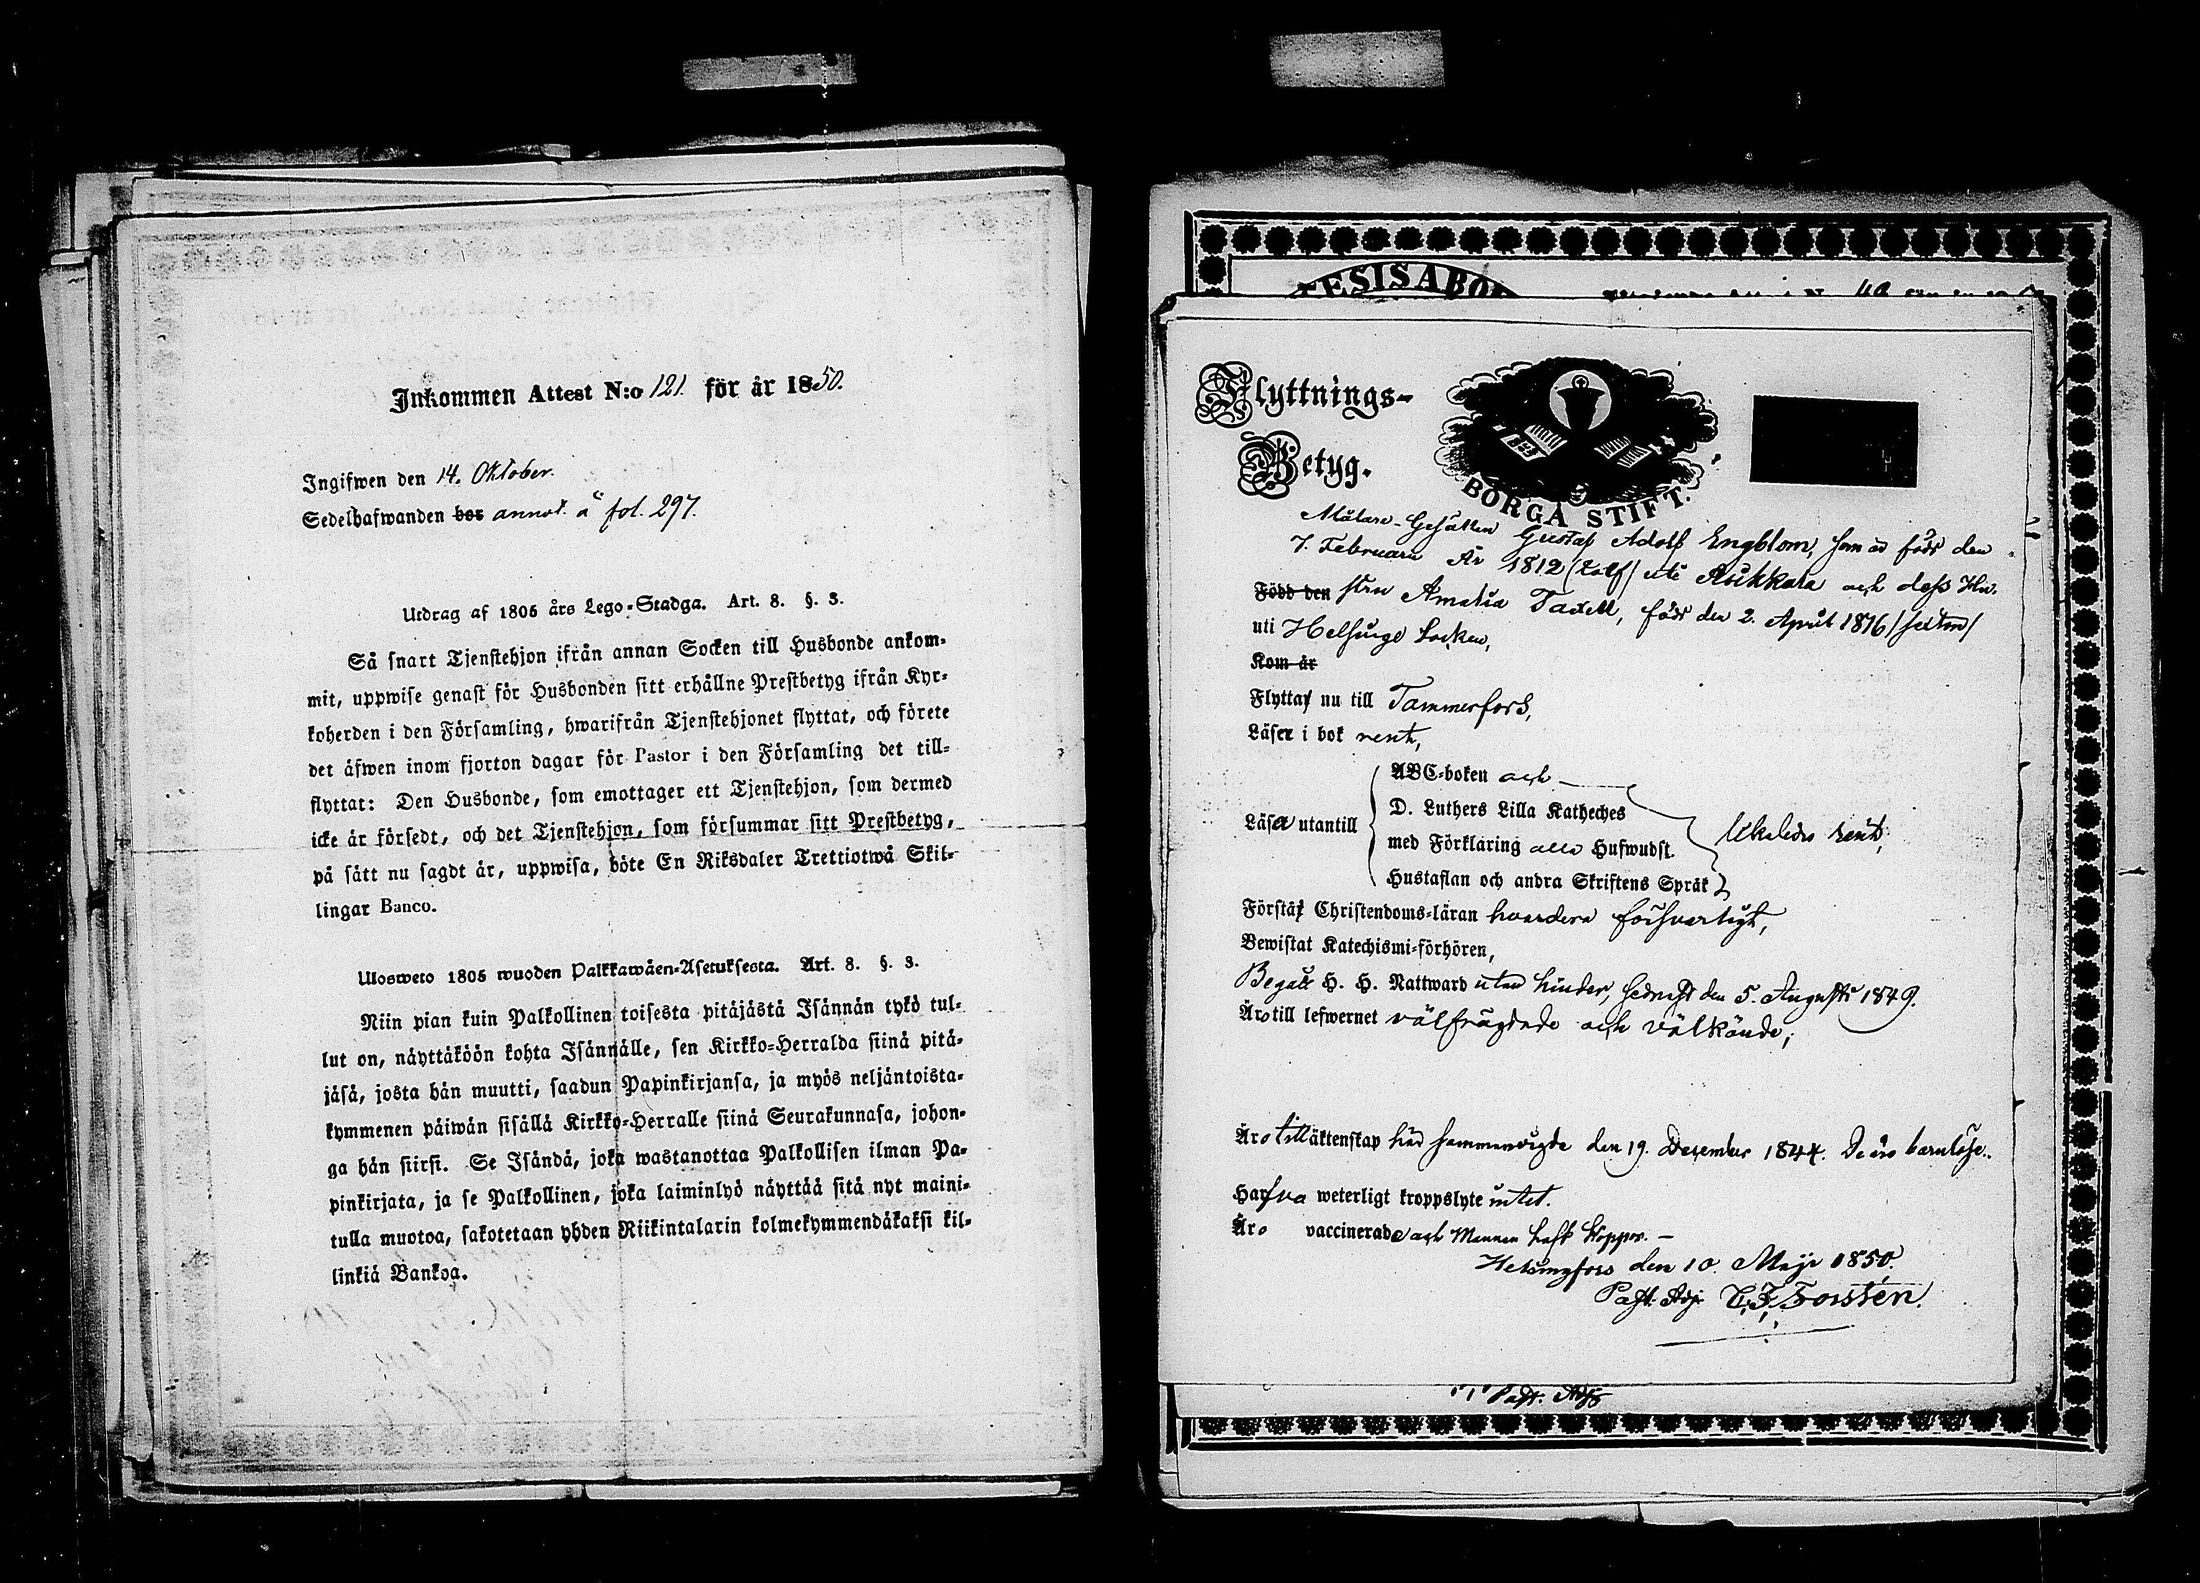 Inkommen Attest N:o 121. för år 1850.
Ingifwen den 14. Oktober.
Sedelhafwanden bor annot. å fol. 297.
Utdrag af 1805 års Lego-Stadga. Art. 8. §. 3.
Så snart Tjenstehjon ifrån annan Socken till Husbonde ankom-
mit, uppwise genast för Husbonden sitt erhållne Prestbetyg ifrån Kyr-
koherden i den Församling, hwarifrån Tjenstehjonet flyttat, och förete
det äfwen inom fjorton dagar för Pastor i den Församling det till-
flyttat: Den Husbonde, som emottager ett Tjenstehjon, som dermed
icke är försedt, och det Tjenstehjon, som försummar sitt Prestbetyg,
på sätt nu sagdt är, uppwisa, böte En Riksdaler Trettiotwå Skil-
lingar Banco.
Ulosweto 1805 wuoden Palkkawäen-Asetuksesta. Art. 8. §. 3.
Niin pian kuin Palkollinen toisesta pitäjästä Isännän tykö tul-
lut on, näyttäköön kohta Isännälle, sen Kirkko-Herralda siinä pitä-
jäsä, josta hän muutti, saadun Papinkirjansa, ja myös neljäntoista-
kymmenen päiwän sisällä Kirkko-Herralle siinä Seurakunnasa, johon-
ga hän siirsi. Se Isändä, joka wastanottaa Palkollisen ilman Pa-
pinkirjata, ja se Palkollinen, joka laiminlyö näyttää sitä nyt maini-
tulla muotoa, sakotetaan yhden Riikintalarin kolmekymmendäkaksi kil-
linkiä Bankoa.
ESIS ABO
49
Flyttnings-
Betyg.
BORGÅ STIFT.
Målare-Gesällen Gustaf Adolf Engblom, som är född den
7. Februarii År 1812 (tolf) uti Asikkala och dess Hu-
Född den stru Amalia Taxell, född den 2. April 1816/sexton/
uti Helsinge Socken,
Kom år
Flytta nu till Tammerfors,
Läser i bok rent,
ABC-boken och
D. Luthers Lilla Katheches
Läsa utantill
med Förklaring alla Hufwudst.
Hustaflan och andra Skriftens Språk
rent,
Förstå Christendoms-läran hvardera försvarligt,
Bewistat Katechismi-förhören,
Begått H. H. Nattward utan hinder, sednast den 5. Augusti 1849.
Äro till lefwernet välfrägdade och välkände,
Äro till äktenskap här sammanvigde den 19. December 1844. De äro barnlöse.
Hafva weterligt kroppslyte intet.
Äro vaccinerade och Mannen haft koppor. —
Helsingfors den 10. Maji 1850.
Past. Adj. C. F. Forstén.
Past. Adj.